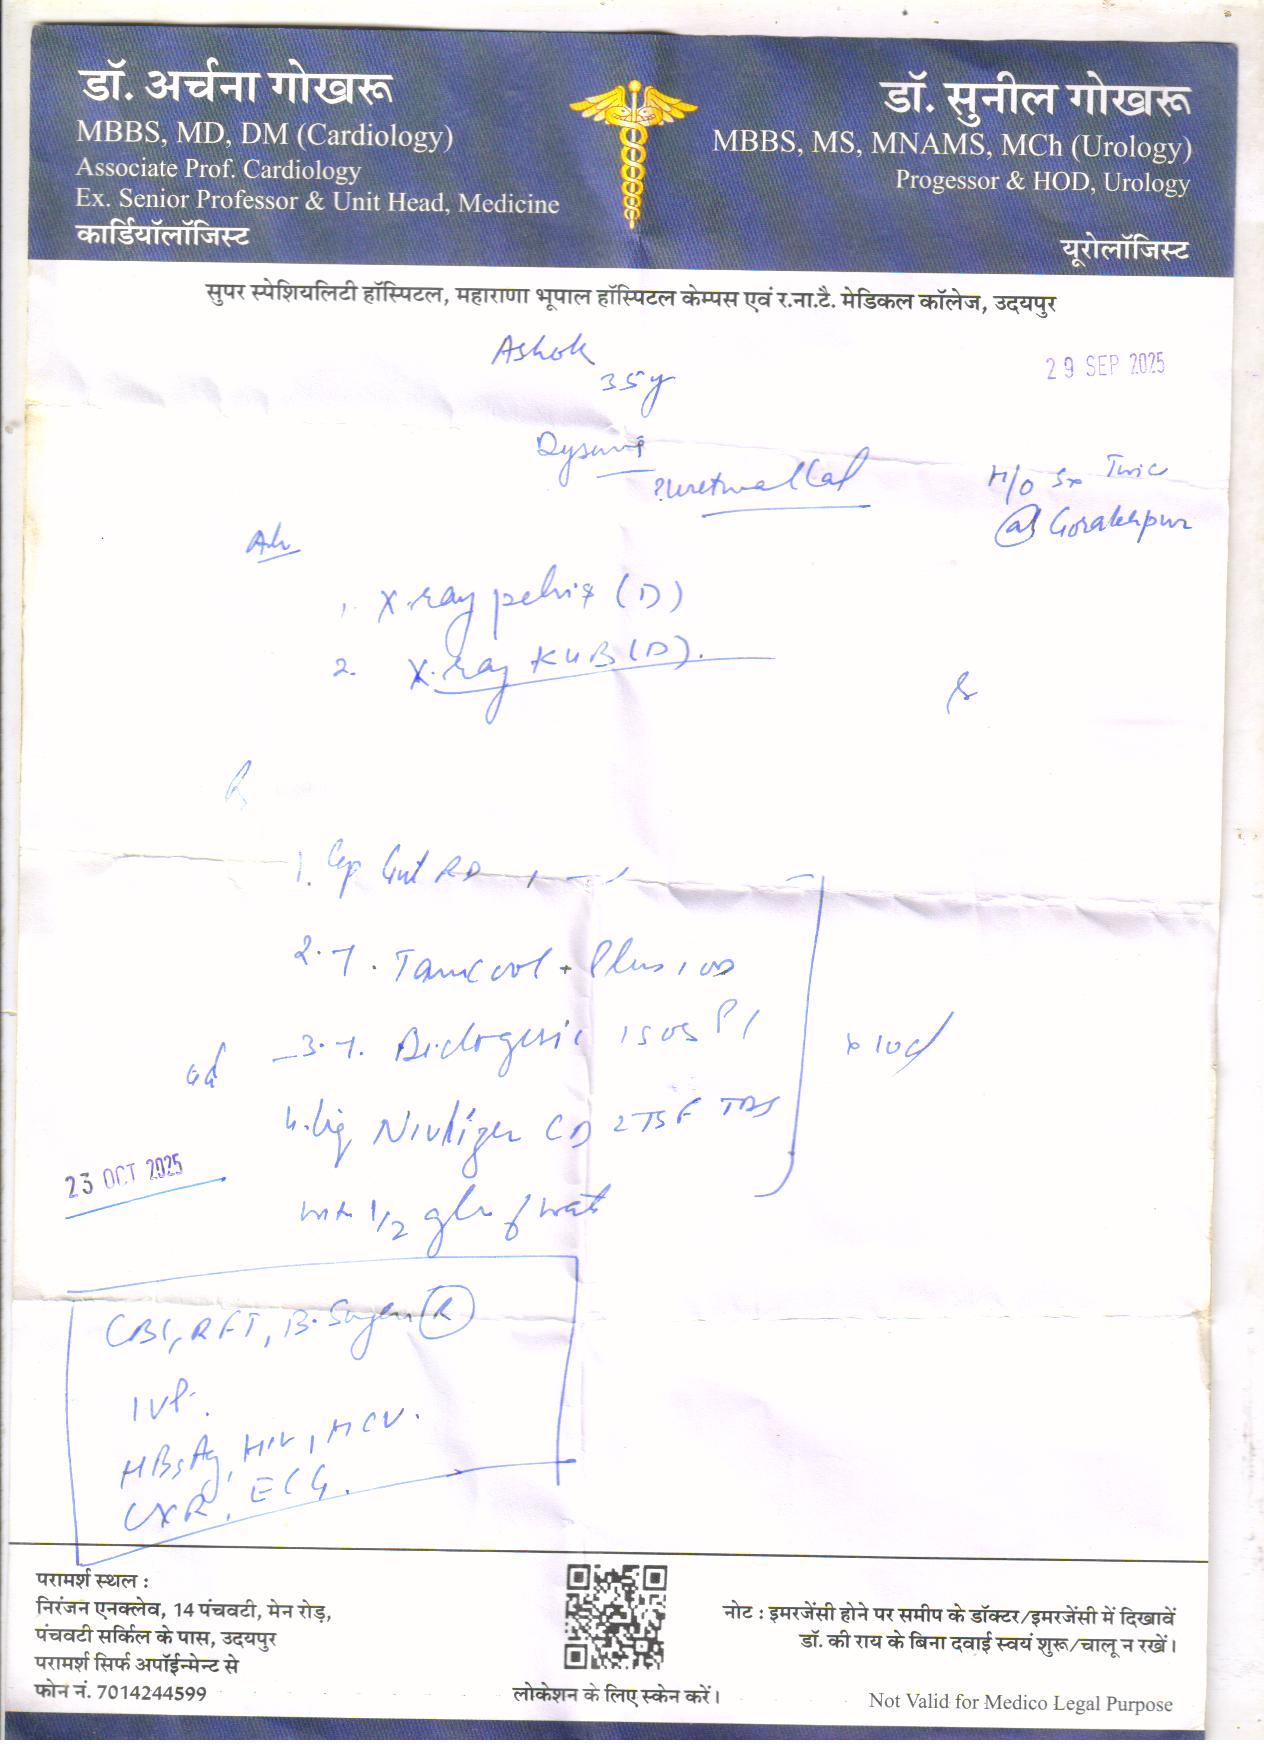 डॉ. अर्चना गोखरू
MBBS, MD, DM (Cardiology)
Associate Prof. Cardiology
Ex. Senior Professor & Unit Head, Medicine
कार्डियॉलॉजिस्ट
डॉ. सुनील गोखरू
MBBS, MS, MNAMS, MCh (Urology)
Progessor & HOD, Urology
यूरोलॉजिस्ट
सुपर स्पेशियलिटी हॉस्पिटल, महाराणा भूपाल हॉस्पिटल केम्पस एवं र.ना.टै. मेडिकल कॉलेज, उदयपुर
Ashok
35y
29 SEP 2025
H/O Sx Twic
@ Gorakhpur
1. X-ray pelvis (D)
2. X-ray KUB (D).
1. Cap RD
2. T. Plus 1 OD
3. T.
x 10d
4. CD 2 TSF TDS
1/2 of wat
23 OCT 2025
CBC, RFT, B. Sugar (R)
IVP.
HBsAg, HIV, HCV.
CXR, ECG.
परामर्श स्थल :
निरंजन एनक्लेव, 14 पंचवटी, मेन रोड़,
पंचवटी सर्किल के पास, उदयपुर
परामर्श सिर्फ अपॉईन्मेन्ट से
फोन नं. 7014244599
लोकेशन के लिए स्केन करें।
नोट : इमरजेंसी होने पर समीप के डॉक्टर/इमरजेंसी में दिखावें
डॉ. की राय के बिना दवाई स्वयं शुरू/चालू न रखें।
Not Valid for Medico Legal Purpose